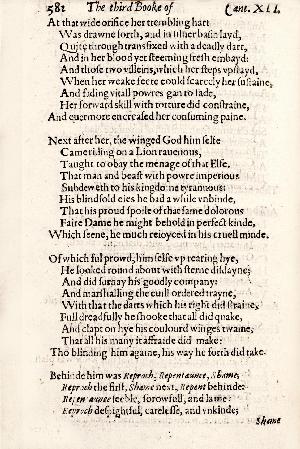 582 The third Booke of Cant. XII.
At that wide orifice her trembling hart
Was drawne forth, and in siluer basin layd,
Quite through transfixed with a deadly dart,
And in her blood yet steeming fresh embayd:
And those two villeins, which her steps vpstayd,
When her weake feete could scarcely her sustaine,
And fading vitall powres gan to fade,
Her forward still with torture did constraine,
And euermore encreased her consuming paine.
Next after her, the winged God him selfe
Came riding on a Lion rauenous,
Taught to obay the menage of that Elfe,
That man and beast with powre imperious
Subdeweth to his kingdome tyrannous:
His blindfold eies he bad a while vnbinde,
That his proud spoile of that same dolorous
Faire Dame he might behold in perfect kinde,
Which seene, he much reioyced in his cruell minde.
Of which ful prowd, him selfe vp rearing hye,
He looked round about with sterne disdayne;
And did suruay his goodly company:
And marshalling the euill ordered trayne,
With that the darts which his right did straine,
Full dreadfully he shooke that all did quake,
And clapt on hye his coulourd winges twaine,
That all his many it affraide did make:
Tho blinding him againe, his way he forth did take.
Behinde him was Reproch, Repentaunce, Shame;
Reproch the first, Shame next, Repent behinde:
Repentaunce feeble, sorowfull, and lame:
Reproch despightful, carelesse, and vnkinde;
Shame